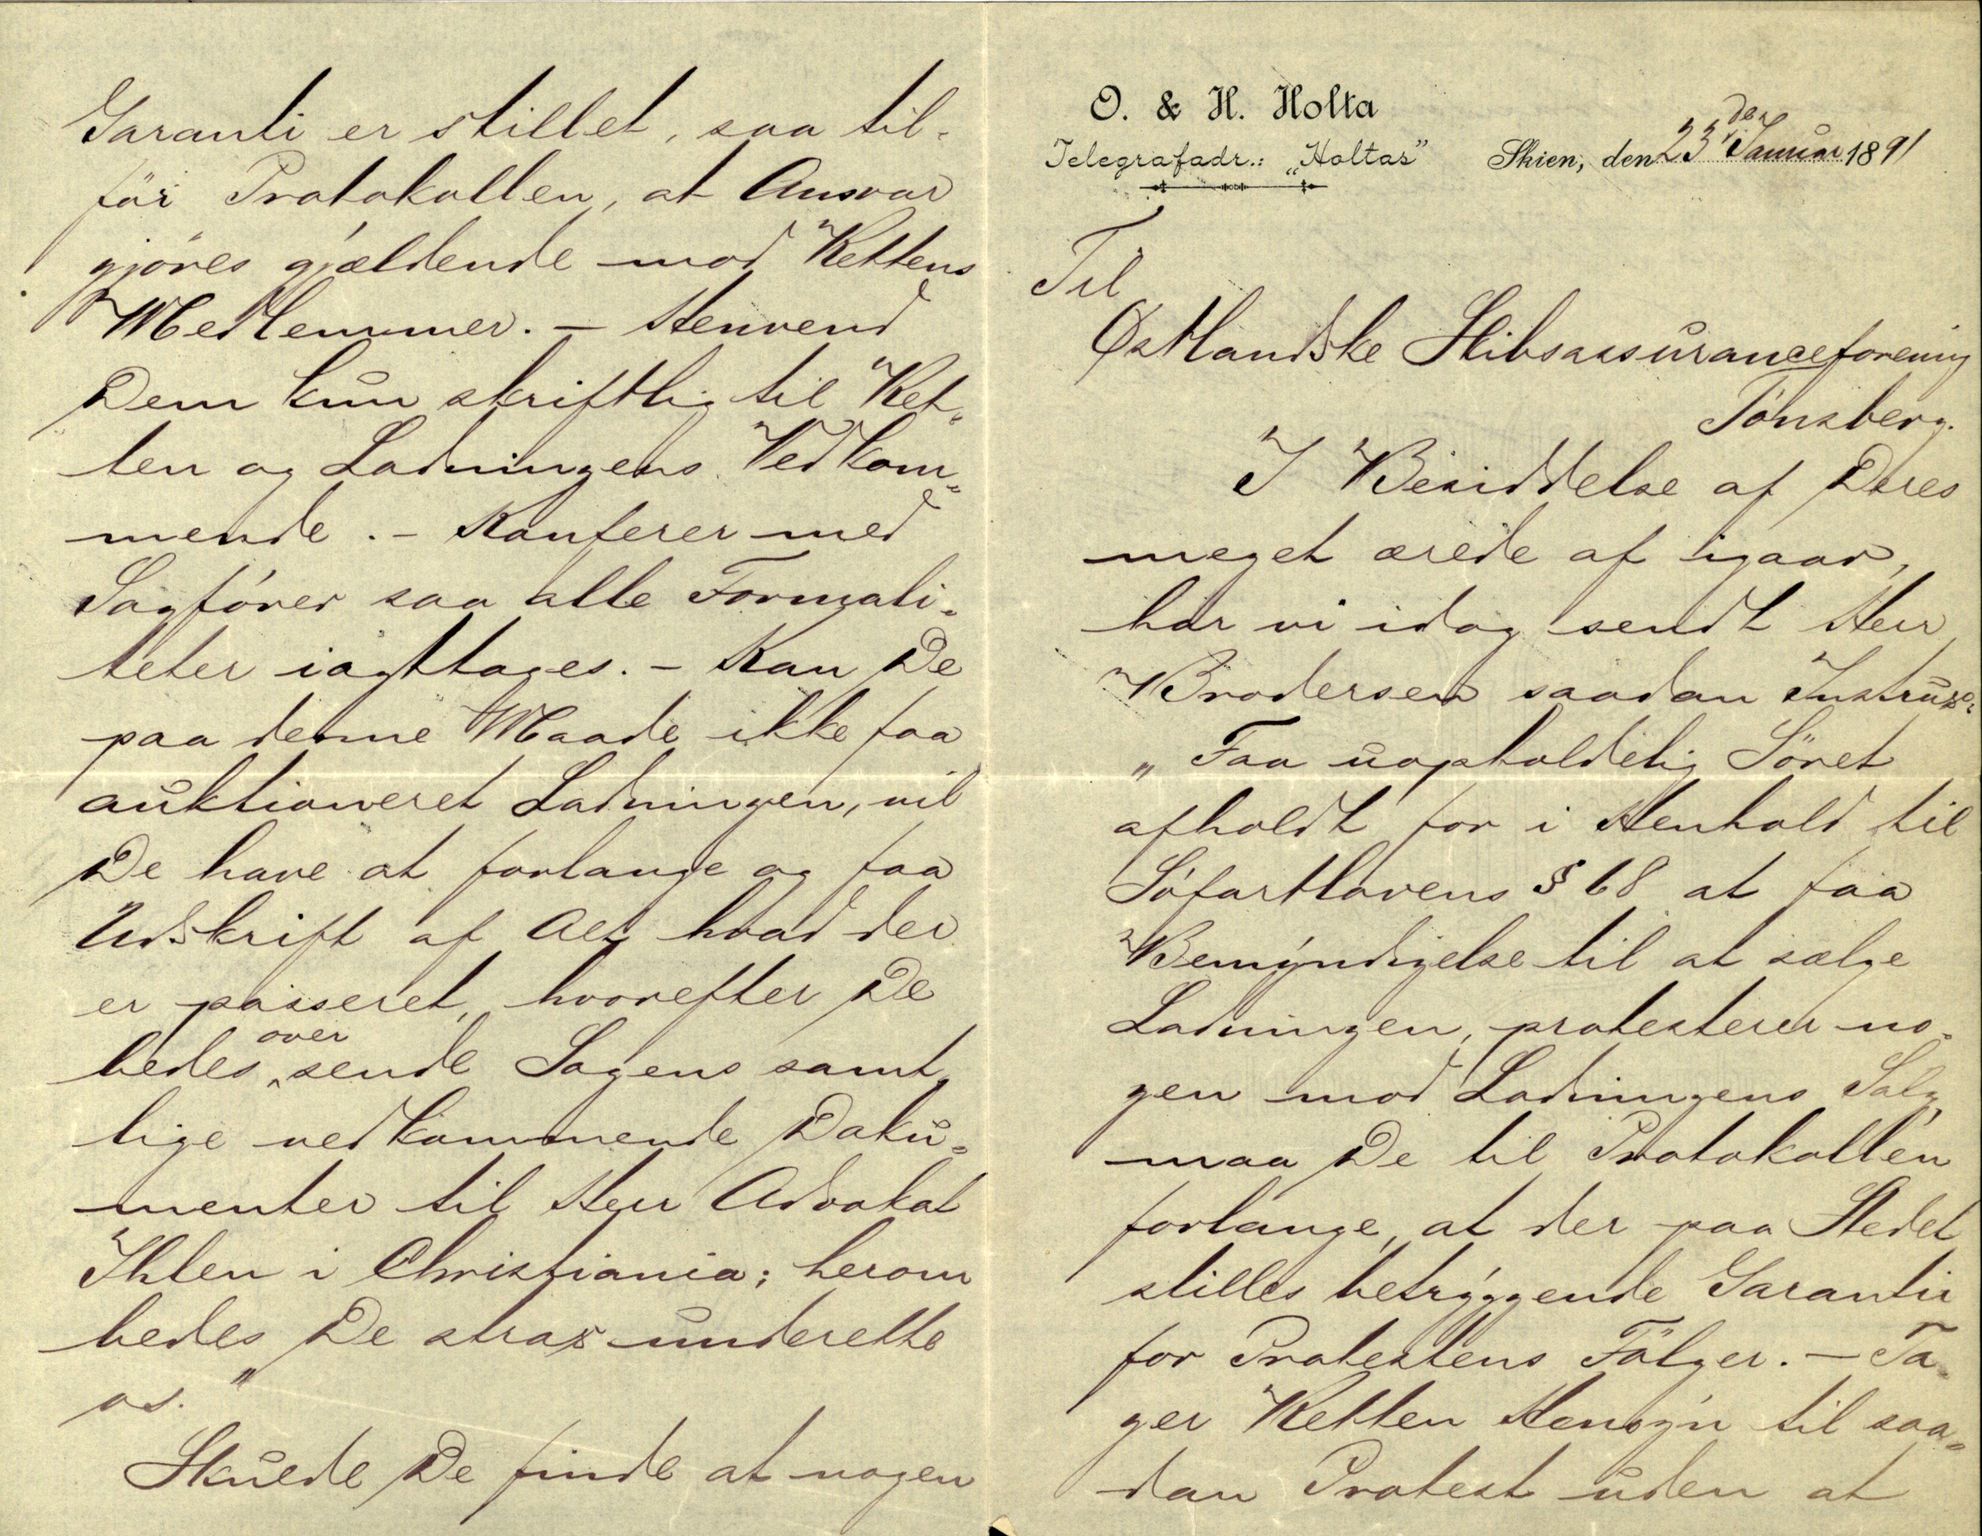 O. & H. Holta
Telegrafadr.: „Holtas”
Skien, den 23den Januar 1891
Til
Østlandske Skibsassuranceforening
Tönsberg.
I Besiddelse af Deres
meget ærede af igaar,
har vi idag sendt Herr
Brodersen saadan Instrux:
„Faa uopholdelig Söret
afholdt for i Henhold til
Söfartslovens § 68 at faa
Bemyndigelse til at sælge
Ladningen, protesterer no-
gen mod Ladningens Salg,
maa De til Protokollen
forlange, at der paa Stedet
stilles betryggende Garanti
for Protestens Fölger. – Ta-
ger Retten Hensyn til saa-
dan Protest uden at
Garanti er stillet, saa til-
för Protokollen, at Ansvar
gjöres gjældende mod Rettens
Medlemmer. – Henvend
Dem kun skriftlig til Ret-
ten og Ladningens Vedkom-
mende. – Konferer med
Sagförer saa alle Formali-
teter iagttages. – Kan De
paa denne Maade ikke faa
auktioneret Ladningen, vil
De have at forlange og faa
Udskrift af Alt hvad der
er passeret, hvorefter De
bedes oversende Sagens samt-
lige vedkommende Doku-
menter til Herr Advokat
Ihlen i Christiania; herom
bedes De strax underrette
os.”
Skulde De finde at nogen